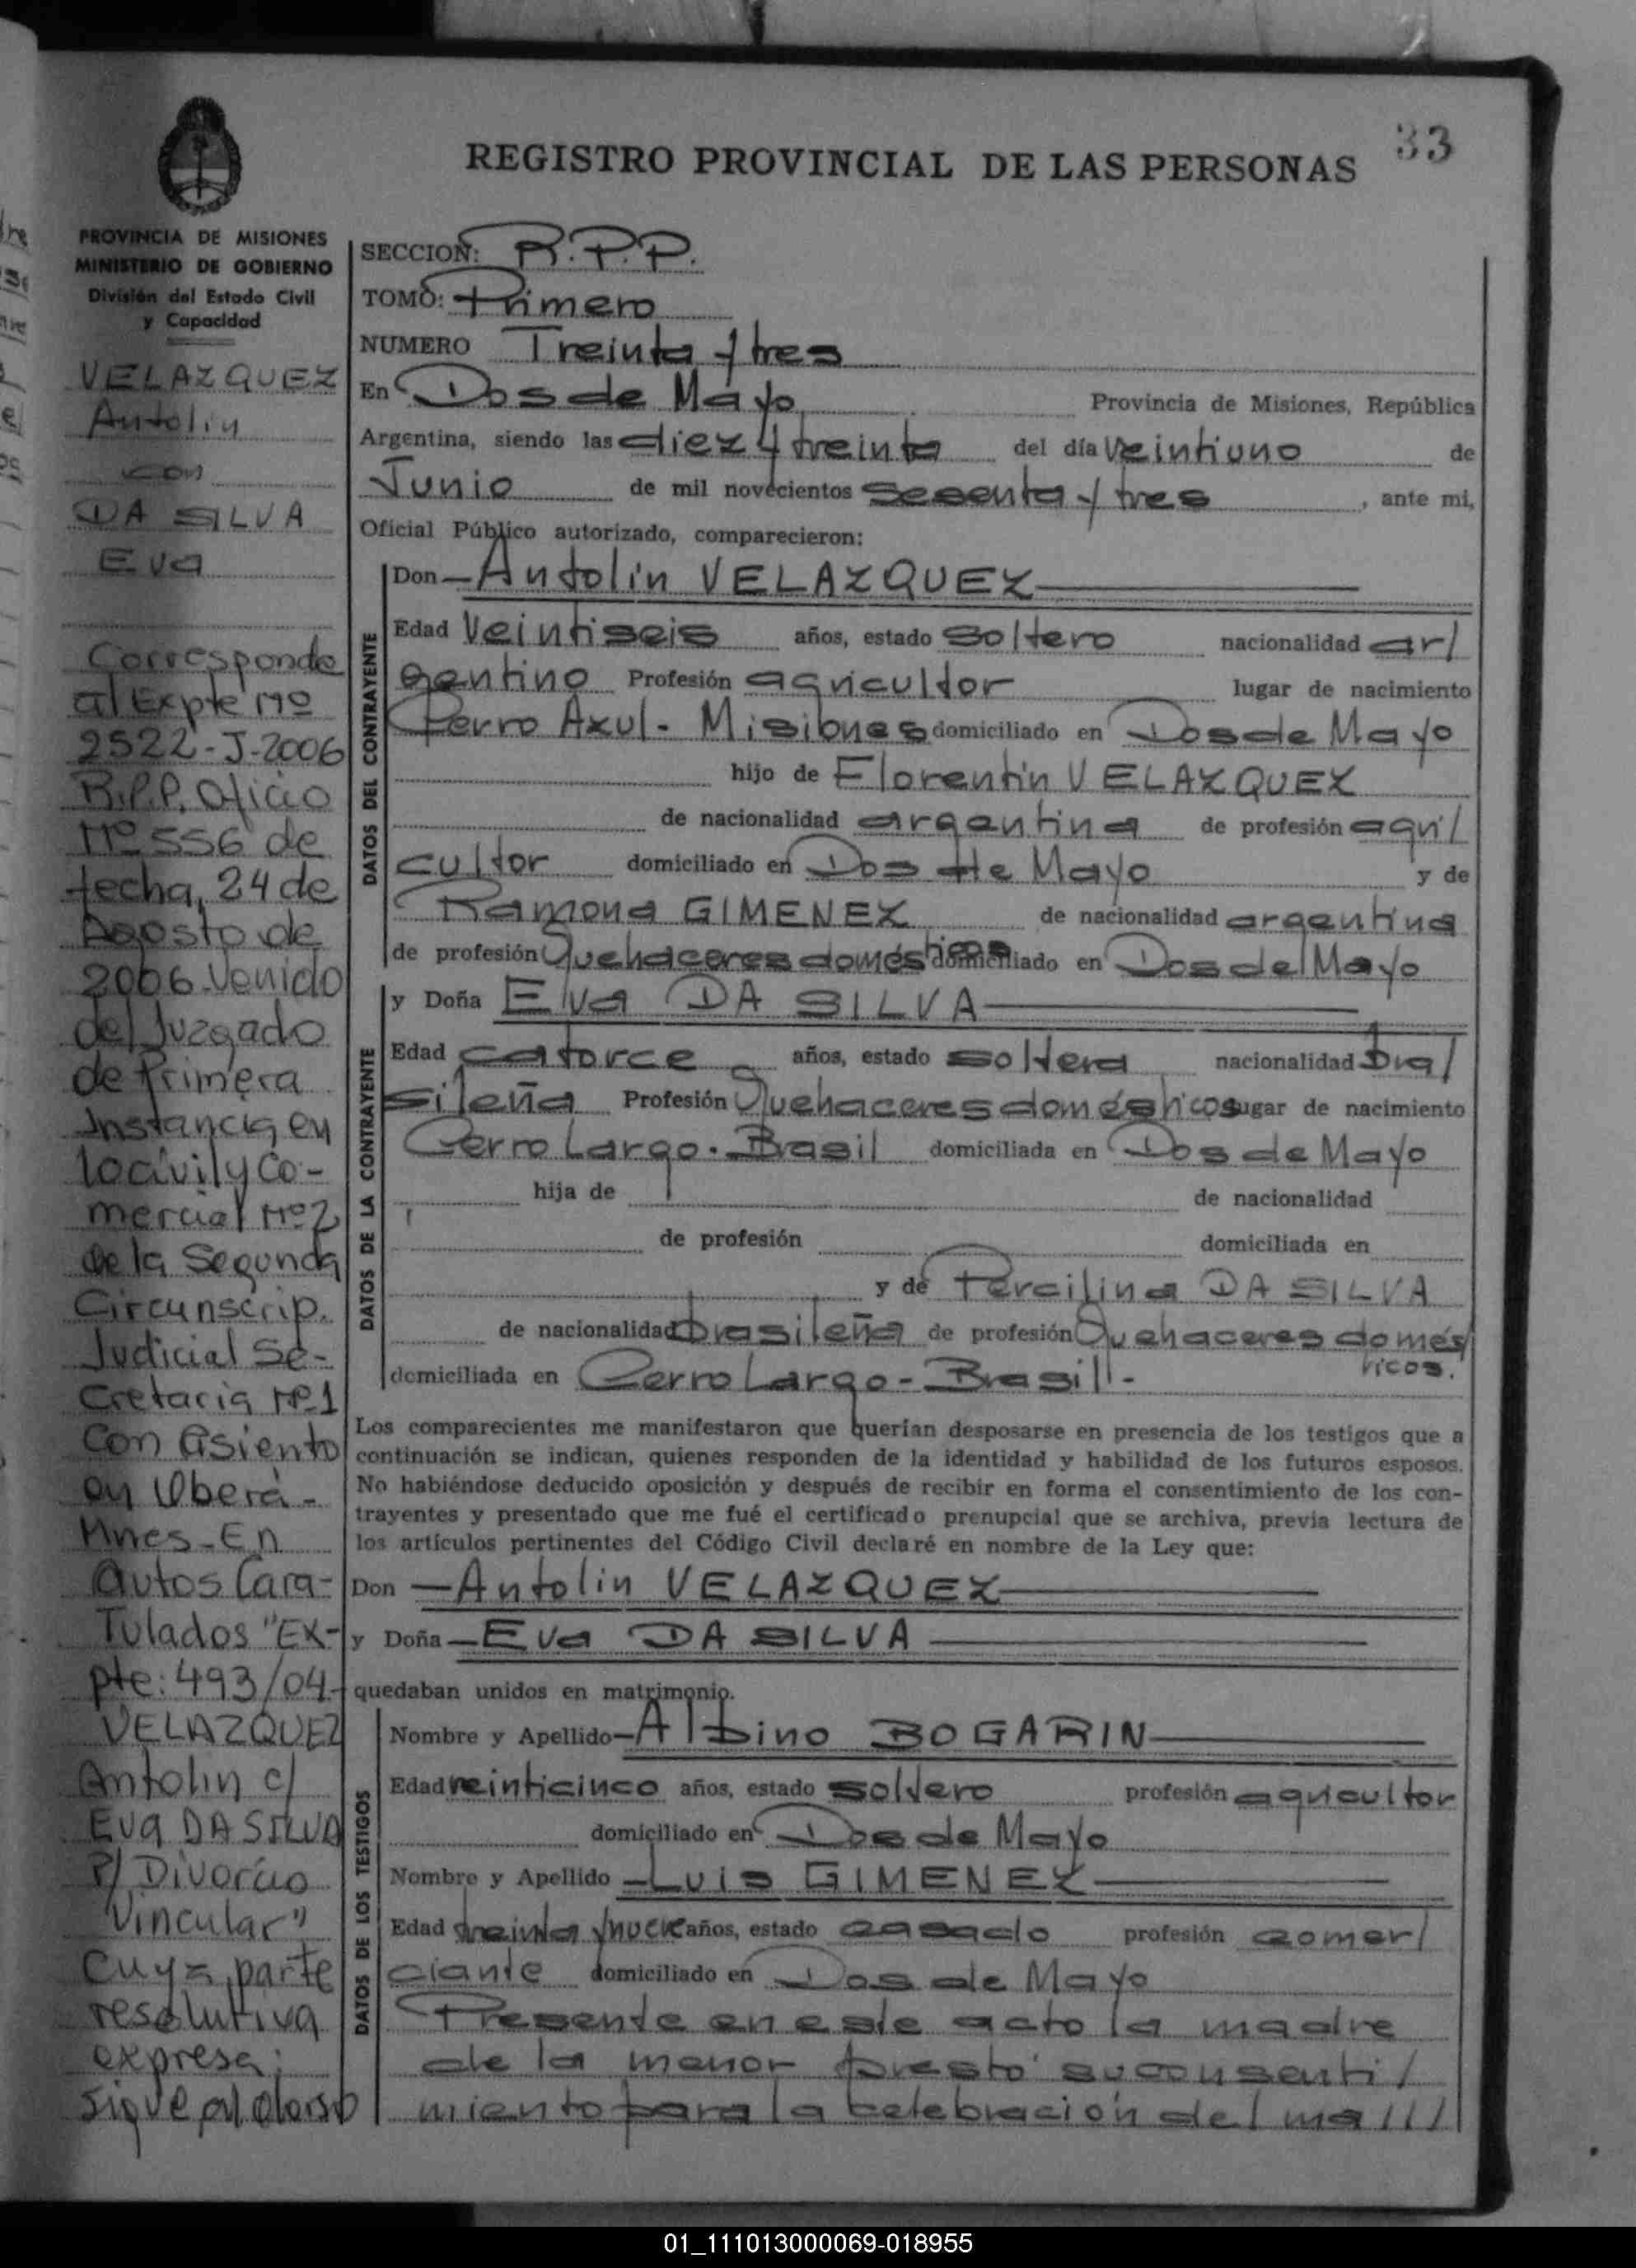 33
REGISTRO PROVINCIAL DE LAS PERSONAS
PROVINCIA DE MISIONES
MINISTERIO DE GOBIERNO
División del Estado Civil
y Capacidad
VELAZQUEZ
Antolin
con
DA SILVA
Eva
Corresponde
al Expte Nº
2522-J-2006
R.P.P. Oficio
Nº 556 de
fecha, 24 de
Agosto de
2006. Venido
del Juzgado
de Primera
Instancia en
lo Civil y Co-
mercial Nº 2
de la Segunda
Circunscrip.
Judicial Se-
cretaria Nº 1
con asiento
en Oberá-
Mnes-En
autos Cara-
tulados "EX-
pte: 493/04-
VELAZQUEZ
Antolin c/
Eva DA SILVA
P/ Divorcio
Vincular"
Cuya parte
resolutiva
expresa:
sigue al dorso
SECCION: R.P.P.
TOMO: Primero
NUMERO Treinta y tres
En Dos de Mayo Provincia de Misiones, República
Argentina, siendo las diez y treinta del día veintiuno de
Junio de mil novecientos sesenta y tres, ante mi,
Oficial Público autorizado, comparecieron:
DATOS DEL CONTRAYENTE
Don - Antolin VELAZQUEZ
Edad Veintiseis años, estado soltero nacionalidad ar/
gentino Profesión agricultor lugar de nacimiento
Cerro Azul - Misiones domiciliado en Dos de Mayo
hijo de Florentin VELAZQUEZ
de nacionalidad argentina de profesión agri/
cultor domiciliado en Dos de Mayo y de
Ramona GIMENEZ de nacionalidad argentina
de profesión Quehaceres domésticos domiciliado en Dos de Mayo
DATOS DE LA CONTRAYENTE
y Doña Eva DA SILVA
Edad catorce años, estado soltera nacionalidad bra/
sileña Profesión Quehaceres domésticos lugar de nacimiento
Cerro Largo - Brasil domiciliada en Dos de Mayo
hija de de nacionalidad
de profesión domiciliada en
y de Percilina DA SILVA
de nacionalidad brasileña de profesión Quehaceres domés
ticos.
domiciliada en Cerro Largo - Brasil -
Los comparecientes me manifestaron que querían desposarse en presencia de los testigos que a
continuación se indican, quienes responden de la identidad y habilidad de los futuros esposos.
No habiéndose deducido oposición y después de recibir en forma el consentimiento de los con-
trayentes y presentado que me fué el certificado prenupcial que se archiva, previa lectura de
los artículos pertinentes del Código Civil declaré en nombre de la Ley que:
Don - Antolin VELAZQUEZ
y Doña - Eva DA SILVA
quedaban unidos en matrimonio.
DATOS DE LOS TESTIGOS
Nombre y Apellido - Albino BOGARIN
Edad veinticinco años, estado soltero profesión agricultor
domiciliado en Dos de Mayo
Nombre y Apellido - Luis GIMENEZ
Edad treinta y nueve años, estado casado profesión comer/
ciante domiciliado en Dos de Mayo
Presente en este acto la madre
de la menor prestó su consenti/
miento para la celebración del ma///
01_111013000069-018955